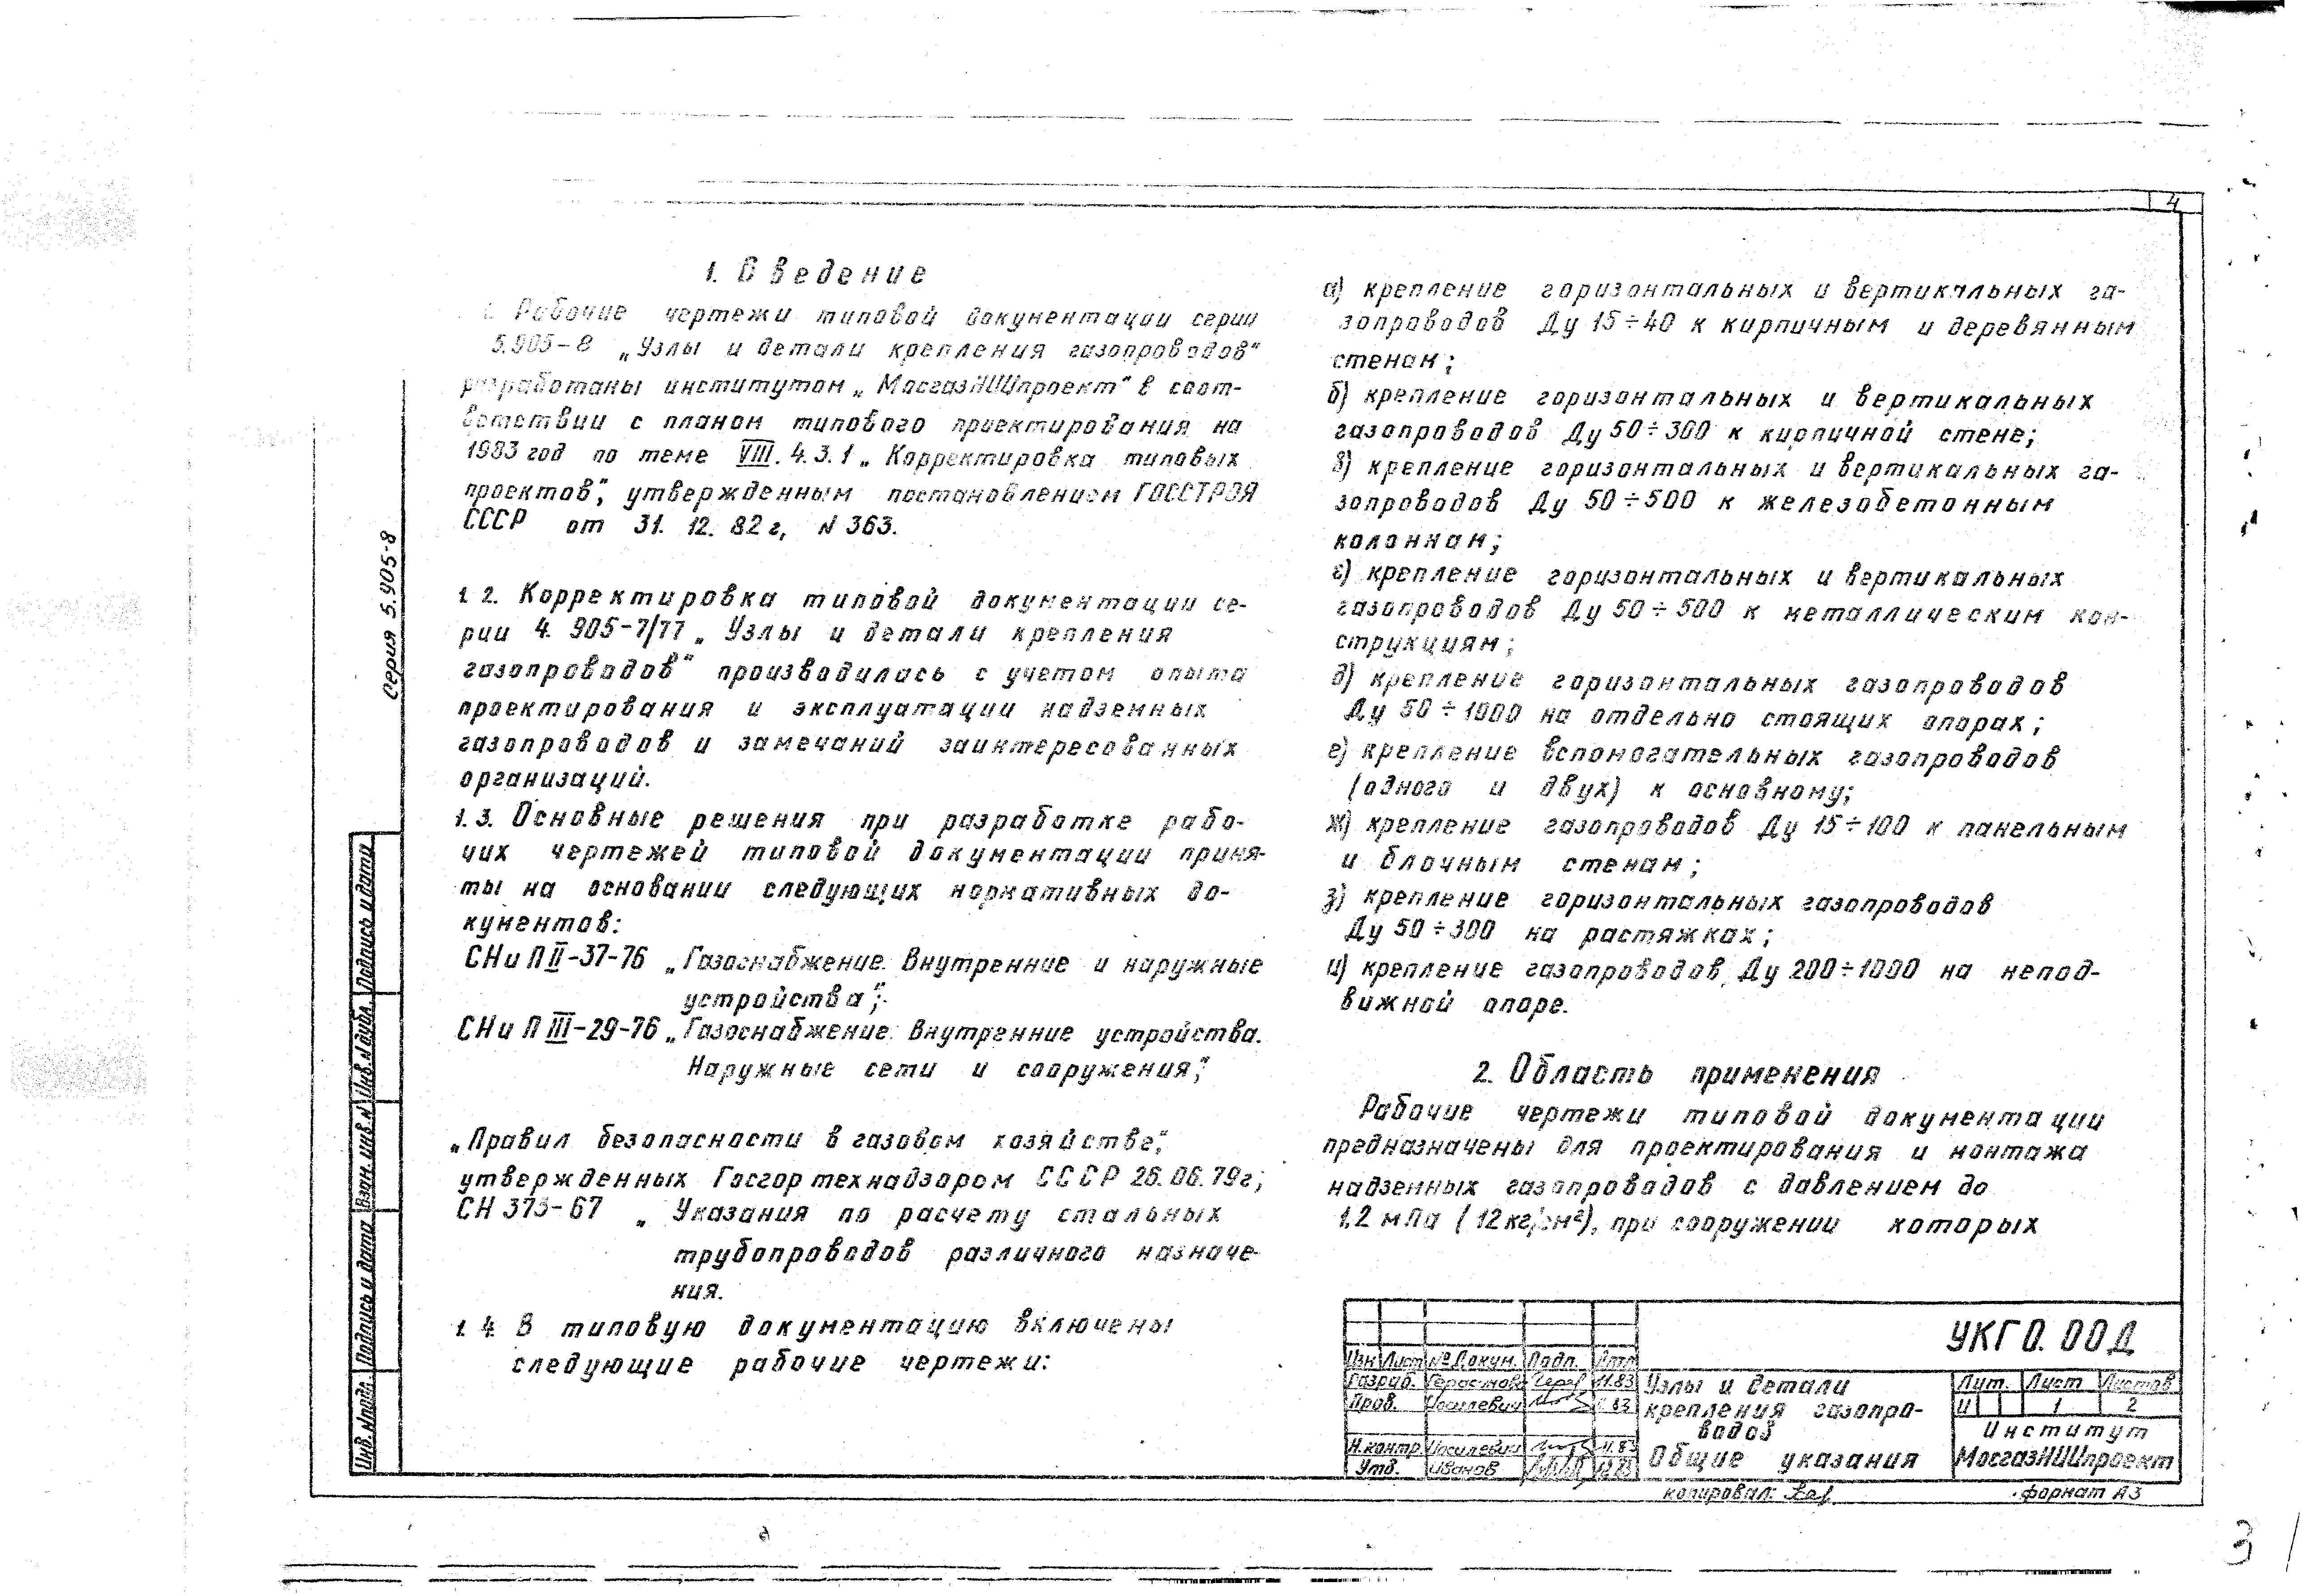 4
1. Введение
1. Рабочие чертежи типовой документации серии
5.905-8 „Узлы и детали крепления газопроводов"
разработаны институтом „МосгазНИИпроект" в соот-
ветствии с планом типового проектирования на
1983 год по теме VIII. 4.3.1 „Корректировка типовых
проектов", утвержденным постановлением ГОССТРОЯ
СССР от 31. 12. 82 г, N 363.
1. 2. Корректировка типовой документации се-
рии 4. 905-7/77 „Узлы и детали крепления
газопроводов" производилась с учетом опыта
проектирования и эксплуатации надземных
газопроводов и замечаний заинтересованных
организаций.
1. 3. Основные решения при разработке рабо-
чих чертежей типовой документации приня-
ты на основании следующих нормативных до-
кументов:
СНиП II-37-76 „Газоснабжение. Внутренние и наружные
устройства";
СНиП III-29-76 „Газоснабжение. Внутренние устройства.
Наружные сети и сооружения",
„Правил безопасности в газовом хозяйстве",
утвержденных Госгортехнадзором СССР 26.06.79г;
СН 373-67 „Указания по расчету стальных
трубопроводов различного назначе-
ния.
1. 4. В типовую документацию включены
следующие рабочие чертежи:
а) крепление горизонтальных и вертикальных га-
зопроводов Ду 15÷40 к кирпичным и деревянным
стенам;
б) крепление горизонтальных и вертикальных
газопроводов Ду 50÷300 к кирпичной стене;
в) крепление горизонтальных и вертикальных га-
зопроводов Ду 50÷500 к железобетонным
колоннам;
г) крепление горизонтальных и вертикальных
газопроводов Ду 50÷500 к металлическим кон-
струкциям;
д) крепление горизонтальных газопроводов
Ду 50÷1000 на отдельно стоящих опорах;
е) крепление вспомогательных газопроводов
(одного и двух) к основному;
ж) крепление газопроводов Ду 15÷100 к панельным
и блочным стенам;
з) крепление горизонтальных газопроводов
Ду 50÷300 на растяжках;
и) крепление газопроводов Ду 200÷1000 на непод-
вижной опоре.
2. Область применения
Рабочие чертежи типовой документации
предназначены для проектирования и монтажа
надземных газопроводов с давлением до
1,2 мПа (12кг/см²), при сооружении которых
Серия 5.905-8
Подпись и дата
Инв. N дубл.
Взам. инв. N
Подпись и дата
Инв. N подл.
УКГ 0. 00 Д
Изм Лист № Докум. Подп. Дата
Разраб. Герасимова 11.83
Пров. Иосилевич 83
Н.контр. Иосилевич 11.83
Утв. Иванов 12.83
Узлы и детали
крепления газопро-
водов
Общие указания
Лит. Лист Листов
И 1 2
Институт
МосгазНИИпроект
копировал:
формат А3
3